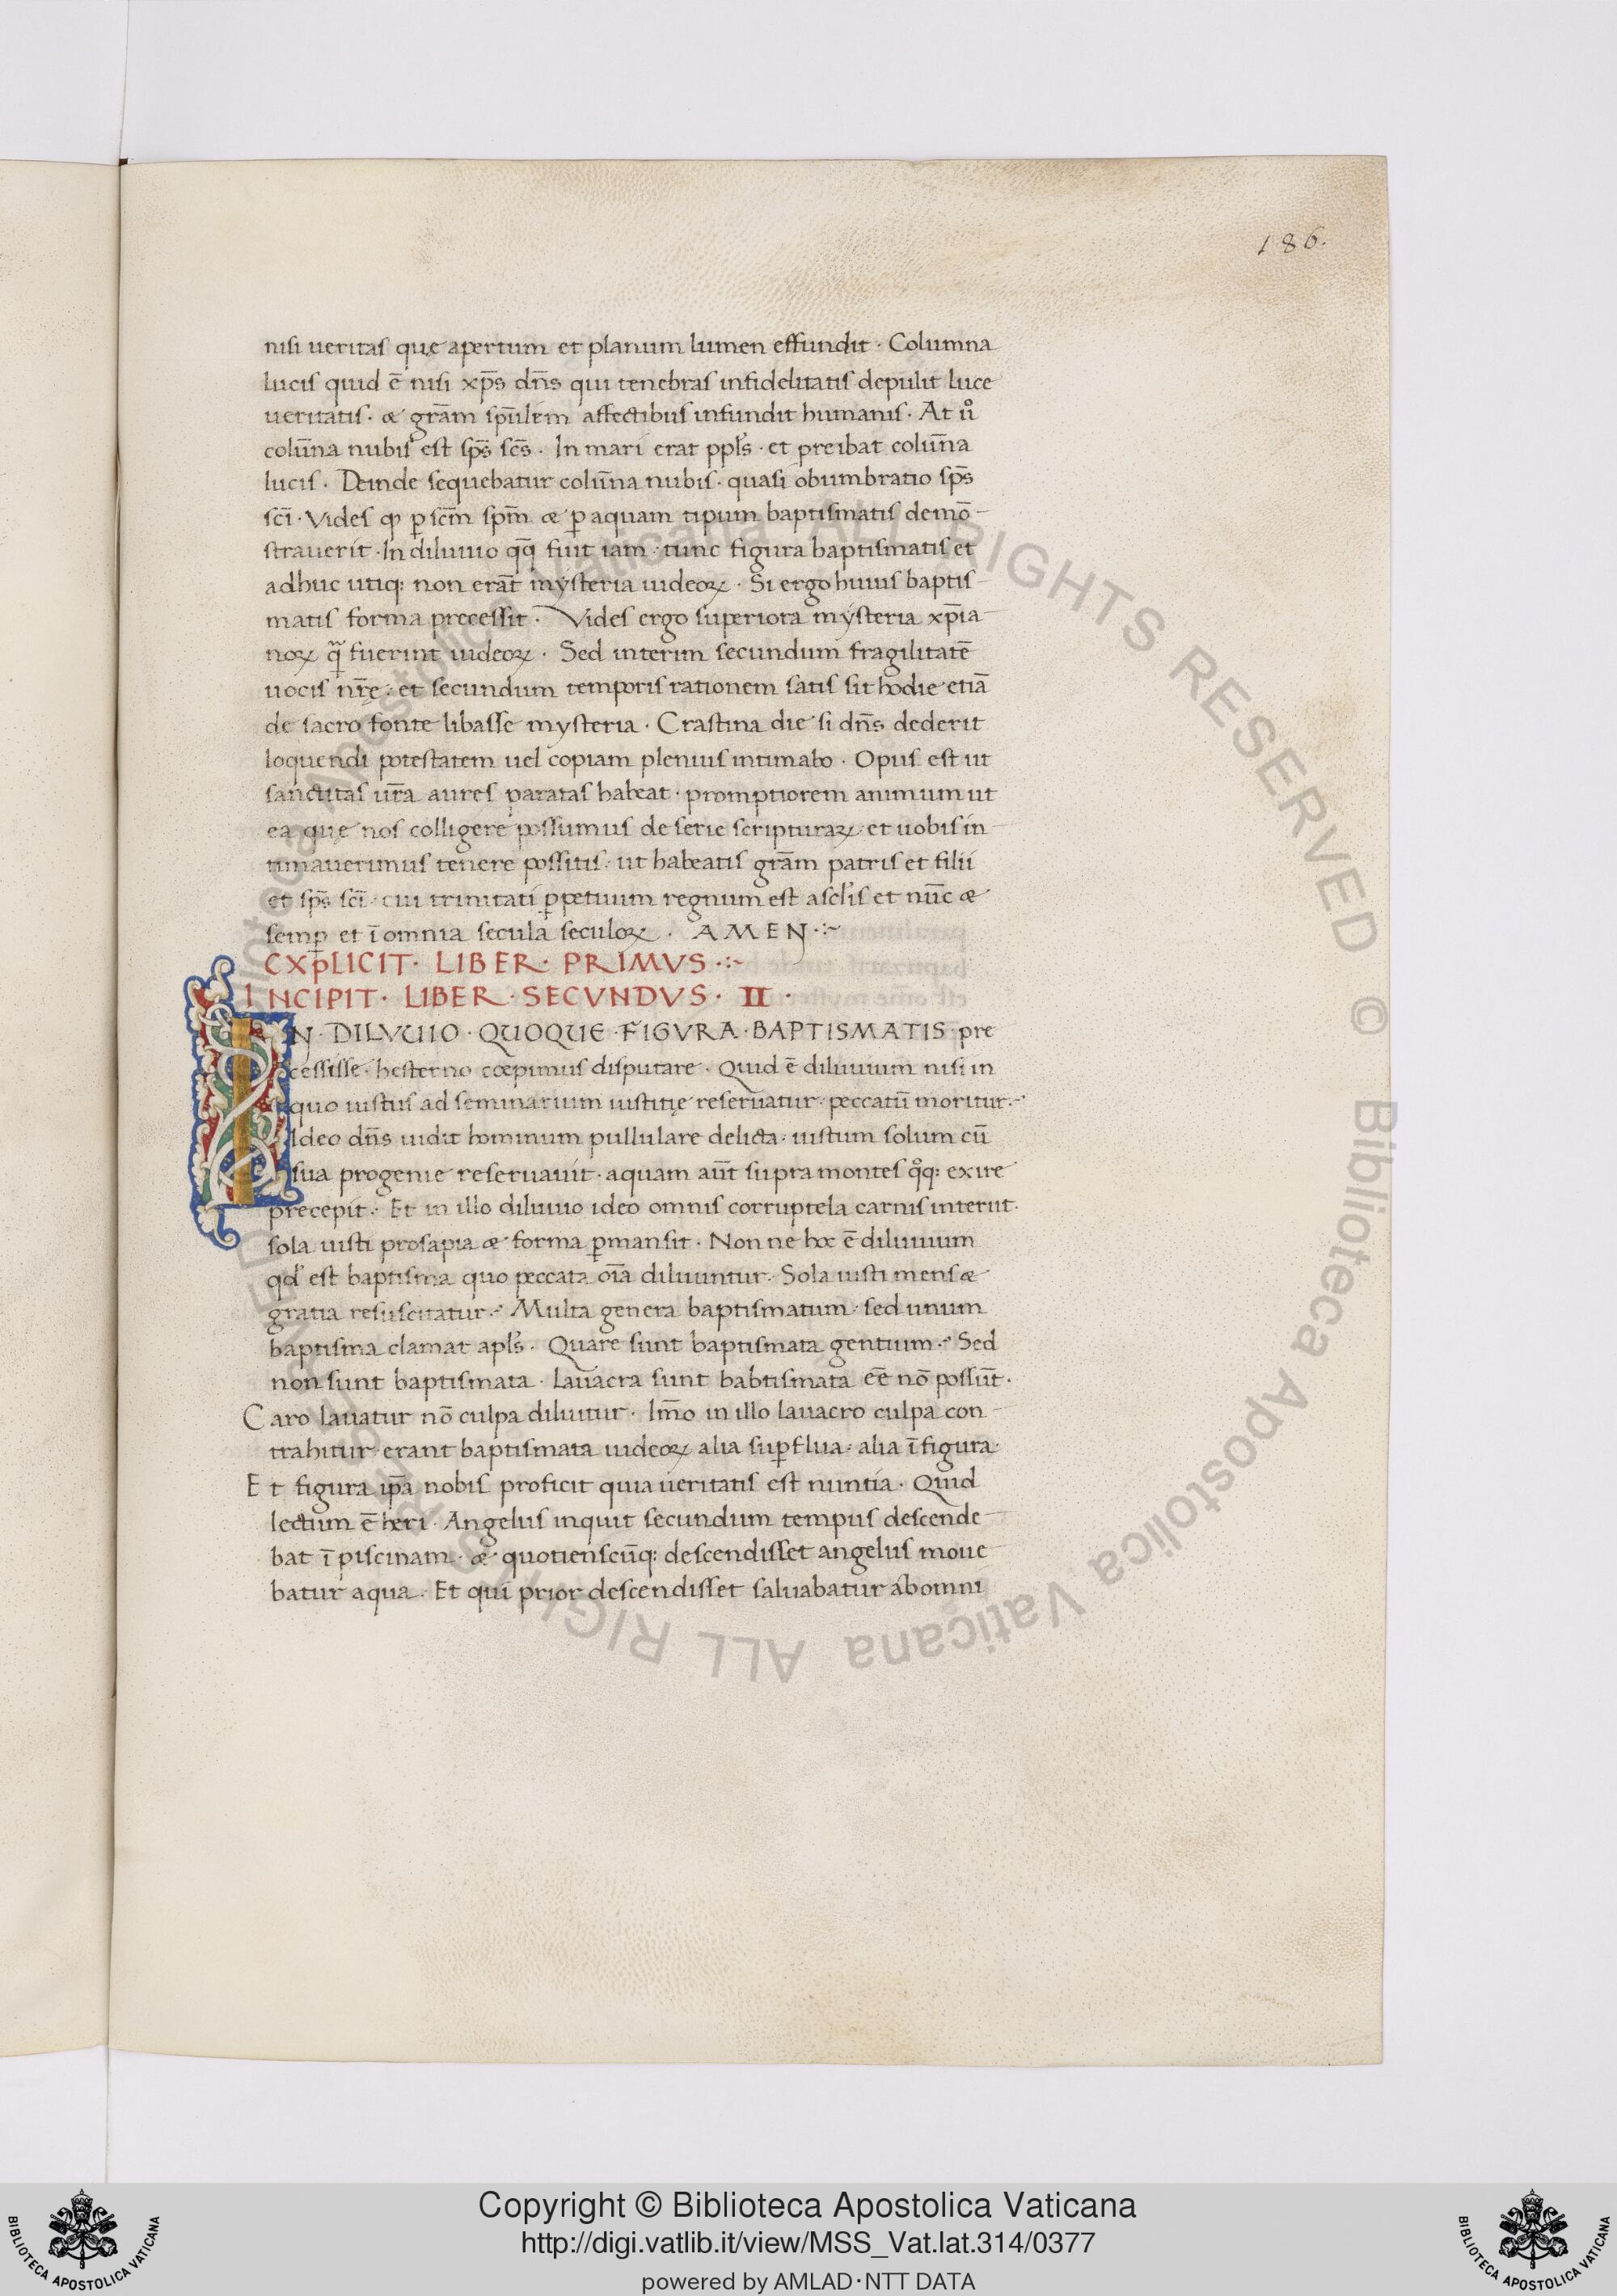 186.
nisi ueritas quę apertum et planum lumen effundit · Columna
lucis quid ē nisi xp̄s dn̄s qui tenebras infidelitatis depulit luce
ueritatis · & grām sp̄ulēm affectibus infundit humanis · At uº
colūna nubis est sp̄s sc̄s · In mari erat ppl̄s · et preibat colūna
lucis · Deinde sequebatur colūna nubis · quasi obumbratio sp̄s
sc̄i · Vides ꝙ ꝑ sc̄m sp̄m & ꝑ aquam tipum baptismatis demō-
strauerit · In diluuio qq̄ fuit iam · tunc figura baptismatis et
adhuc utiq: non erāt mysteria iudeoꝝ · Si ergo huius baptis-
matis forma precessit · Vides ergo superiora mysteria xp̄ia-
noꝝ q̄ fuerint iudeoꝝ · Sed interim secundum fragilitatē
uocis nr̄ę · et secundum temporis rationem satis sit hodie etiā
de sacro fonte libasse mysteria · Crastina die si dn̄s dederit
loquendi potestatem uel copiam plenius intimabo · Opus est ut
sanctitas ur̄a aures paratas habeat · promptiorem animum ut
ea quę nos colligere possumus de serie scripturaꝝ et uobis in-
timauerimus tenere possitis · ut habeatis grām patris et filii
et sp̄s sc̄i · cui trinitati ꝑpetuum regnum est a scl̄is et nūc &
semꝑ et ī omnia secula seculoꝝ · AMEN ·:~
EXpLICIT · LIBER · PRIMVS ·:~
INCIPIT · LIBER · SECVNDVS · II ·
IN · DILVVIO · QUOQUE · FIGVRA · BAPTISMATIS · pre
cessisse · hesterno cœpimus disputare · Quid ē diluuium nisi in
quo iustus ad seminarium iustitię reseruatur · peccatū moritur ·
Ideo dn̄s uidit hominum pullulare delicta · iustum solum cū
sua progenie reseruauit · aquam aūt supra montes qºq: exire
precepit · Et in illo diluuio ideo omnis corruptela carnis interiit ·
sola iusti prosapia & forma ꝑmansit · Non ne hoc ē diluuium
qd' est baptisma quo peccata oīa diluuntur · Sola iusti mens &
gratia resuscitatur · Multa genera baptismatum · sed unum
baptisma clamat apl's · Quare sunt baptismata gentium · Sed
non sunt baptismata · Lauacra sunt babtismata eē nō possūt ·
Caro lauatur nō culpa diluitur · Im̄o in illo lauacro culpa con-
trahitur · erant baptismata iudeoꝝ alia suꝑflua · alia ī figura ·
Et figura ip̄a nobis proficit quia ueritatis est nuntia · Quid
lectum ē heri · Angelus inquit secundum tempus descende-
bat ī piscinam · & quotienscūq: descendisset angelus moue-
batur aqua · Et qui prior descendisset saluabatur ab omni
Biblioteca Apostolica Vaticana ALL RIGHTS RESERVED © Biblioteca Apostolica Vaticana ALL RIGHTS RESERVED ©
Copyright © Biblioteca Apostolica Vaticana
http://digi.vatlib.it/view/MSS_Vat.lat.314/0377
powered by AMLAD·NTT DATA
BIBLIOTECA APOSTOLICA VATICANA
BIBLIOTECA APOSTOLICA VATICANA